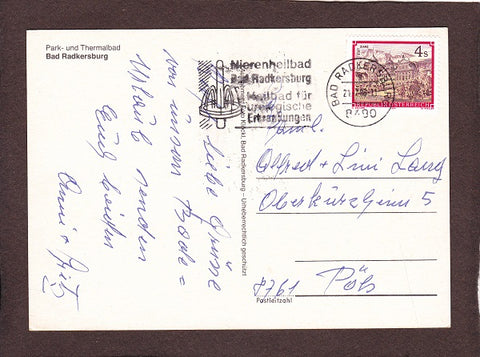 Park- und Thermalbad
Bad Radkersburg
Nierenheilbad
Bad Radkersburg
Heilbad für
urologische
Erkrankungen
BAD RADKERSBURG
8490
4s
REPUBLIK ÖSTERREICH
Liebe Grüße
von unserem Bade=
Urlaub senden
Euch beiden
Anni +
Fam.
Alfred + Lini Lang
Oberkurzheim 5
8761 Pöls
Postleitzahl
Bad Radkersburg - Urheberrechtlich geschützt